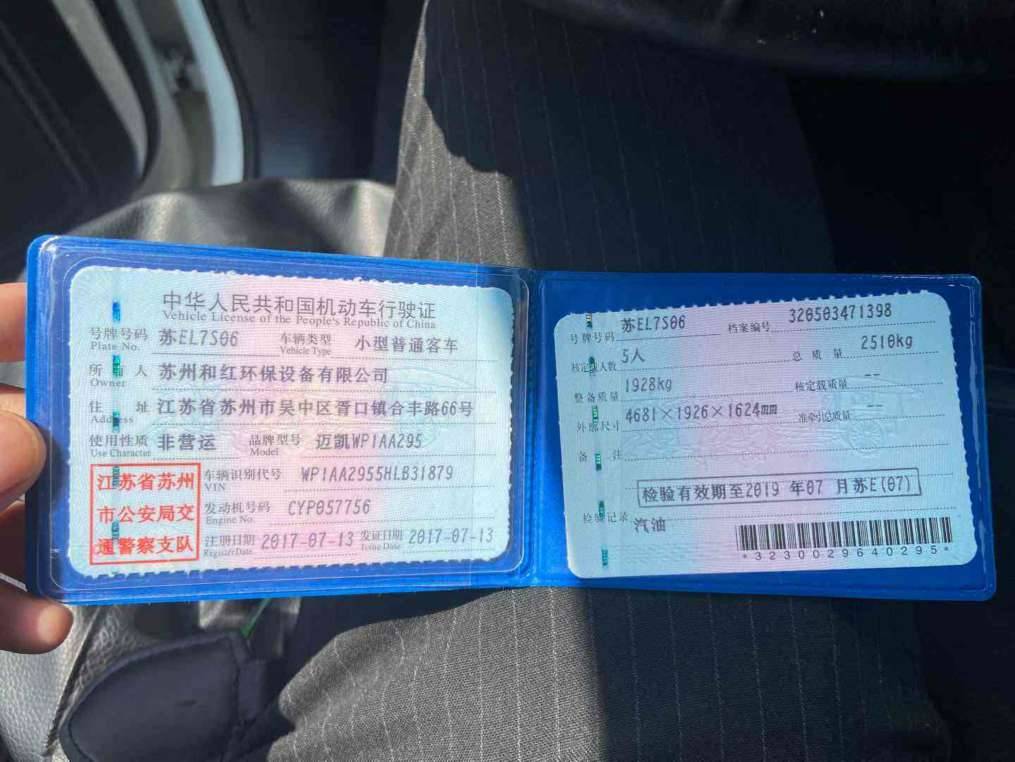 中华人民共和国机动车行驶证
Vehicle License of the People's Republic of China
号牌号码 苏EL7S06 车辆类型 小型普通客车
Plate No. Vehicle Type
所有人 苏州和红环保设备有限公司
Owner
住址 江苏省苏州市吴中区胥口镇合丰路66号
Address
使用性质 非营运 品牌型号 迈凯WP1AA295
Use Character Model
江苏省苏州
市公安局交
通警察支队
车辆识别代号 WP1AA2955HLB31879
VIN
发动机号码 CYP057756
Engine No.
注册日期 2017-07-13 发证日期 2017-07-13
Register Date Issue Date
号牌号码 苏EL7S06 档案编号 320503471398
核定载人数 5人 总质量 2510kg
整备质量 1928kg 核定载质量 --
外廓尺寸 4681×1926×1624mm 准牵引总质量 --
备注
检验有效期至2019年07月苏E(07)
检验记录 汽油
*3230029640295*